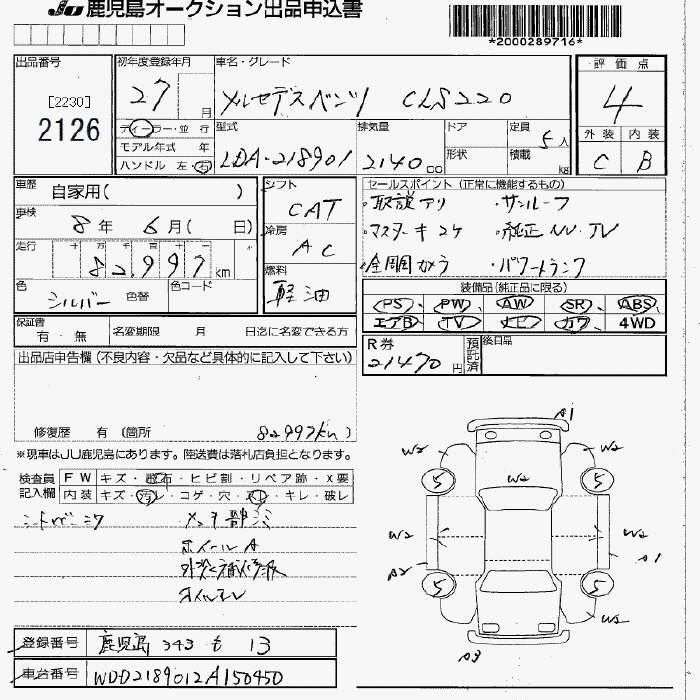 JU 鹿児島オークション出品申込書
*2000289716*
出品番号
[2230]
2126
初年度登録年月
27 月
車名・グレード
メルセデスベンツ CLS220
評価点
4
ディーラー・並行
モデル年式 年
ハンドル 左・右
型式
LDA-218901
排気量
2140 cc
ドア
形状
定員
5人
積載
kg
外装 内装
C B
車歴
自家用( )
車検
8年 6月( 日)
走行 十 万 千 百 十
82,997 km
色
シルバー 色替
色コード
シフト
CAT
冷房
AC
燃料
軽油
セールスポイント (正常に機能するもの)
・取説アリ ・サンルーフ
・マスターキ2ケ ・純正NV.TV
・全周カメラ ・パワートランク
装備品(純正品に限る)
PS、 PW、 AW、 SR、 ABS、
エアB、 TV、 ナビ、 カワ、 4WD
保証書
有・無
名変期限 月 日迄に名変できる方
R券
21470円
預託済
後日品
出品店申告欄(不良内容・欠品など具体的に記入して下さい)
修復歴 有 (箇所 82997km )
※現車はJU鹿児島にあります。陸送費は落札店負担となります。
検査員
記入欄
FW キズ・飛石・ヒビ割・リペア跡・X要
内装 キズ・汚レ・コゲ・穴・スレ・キレ・破レ
ホイールA
外装に補修跡
オイルモレ
A1
W2 W2
5 5
W2
W2 W2
A2 A1
5 5
W2
A3
登録番号 鹿児島 343 も 13
車台番号 WDD2189012A150450